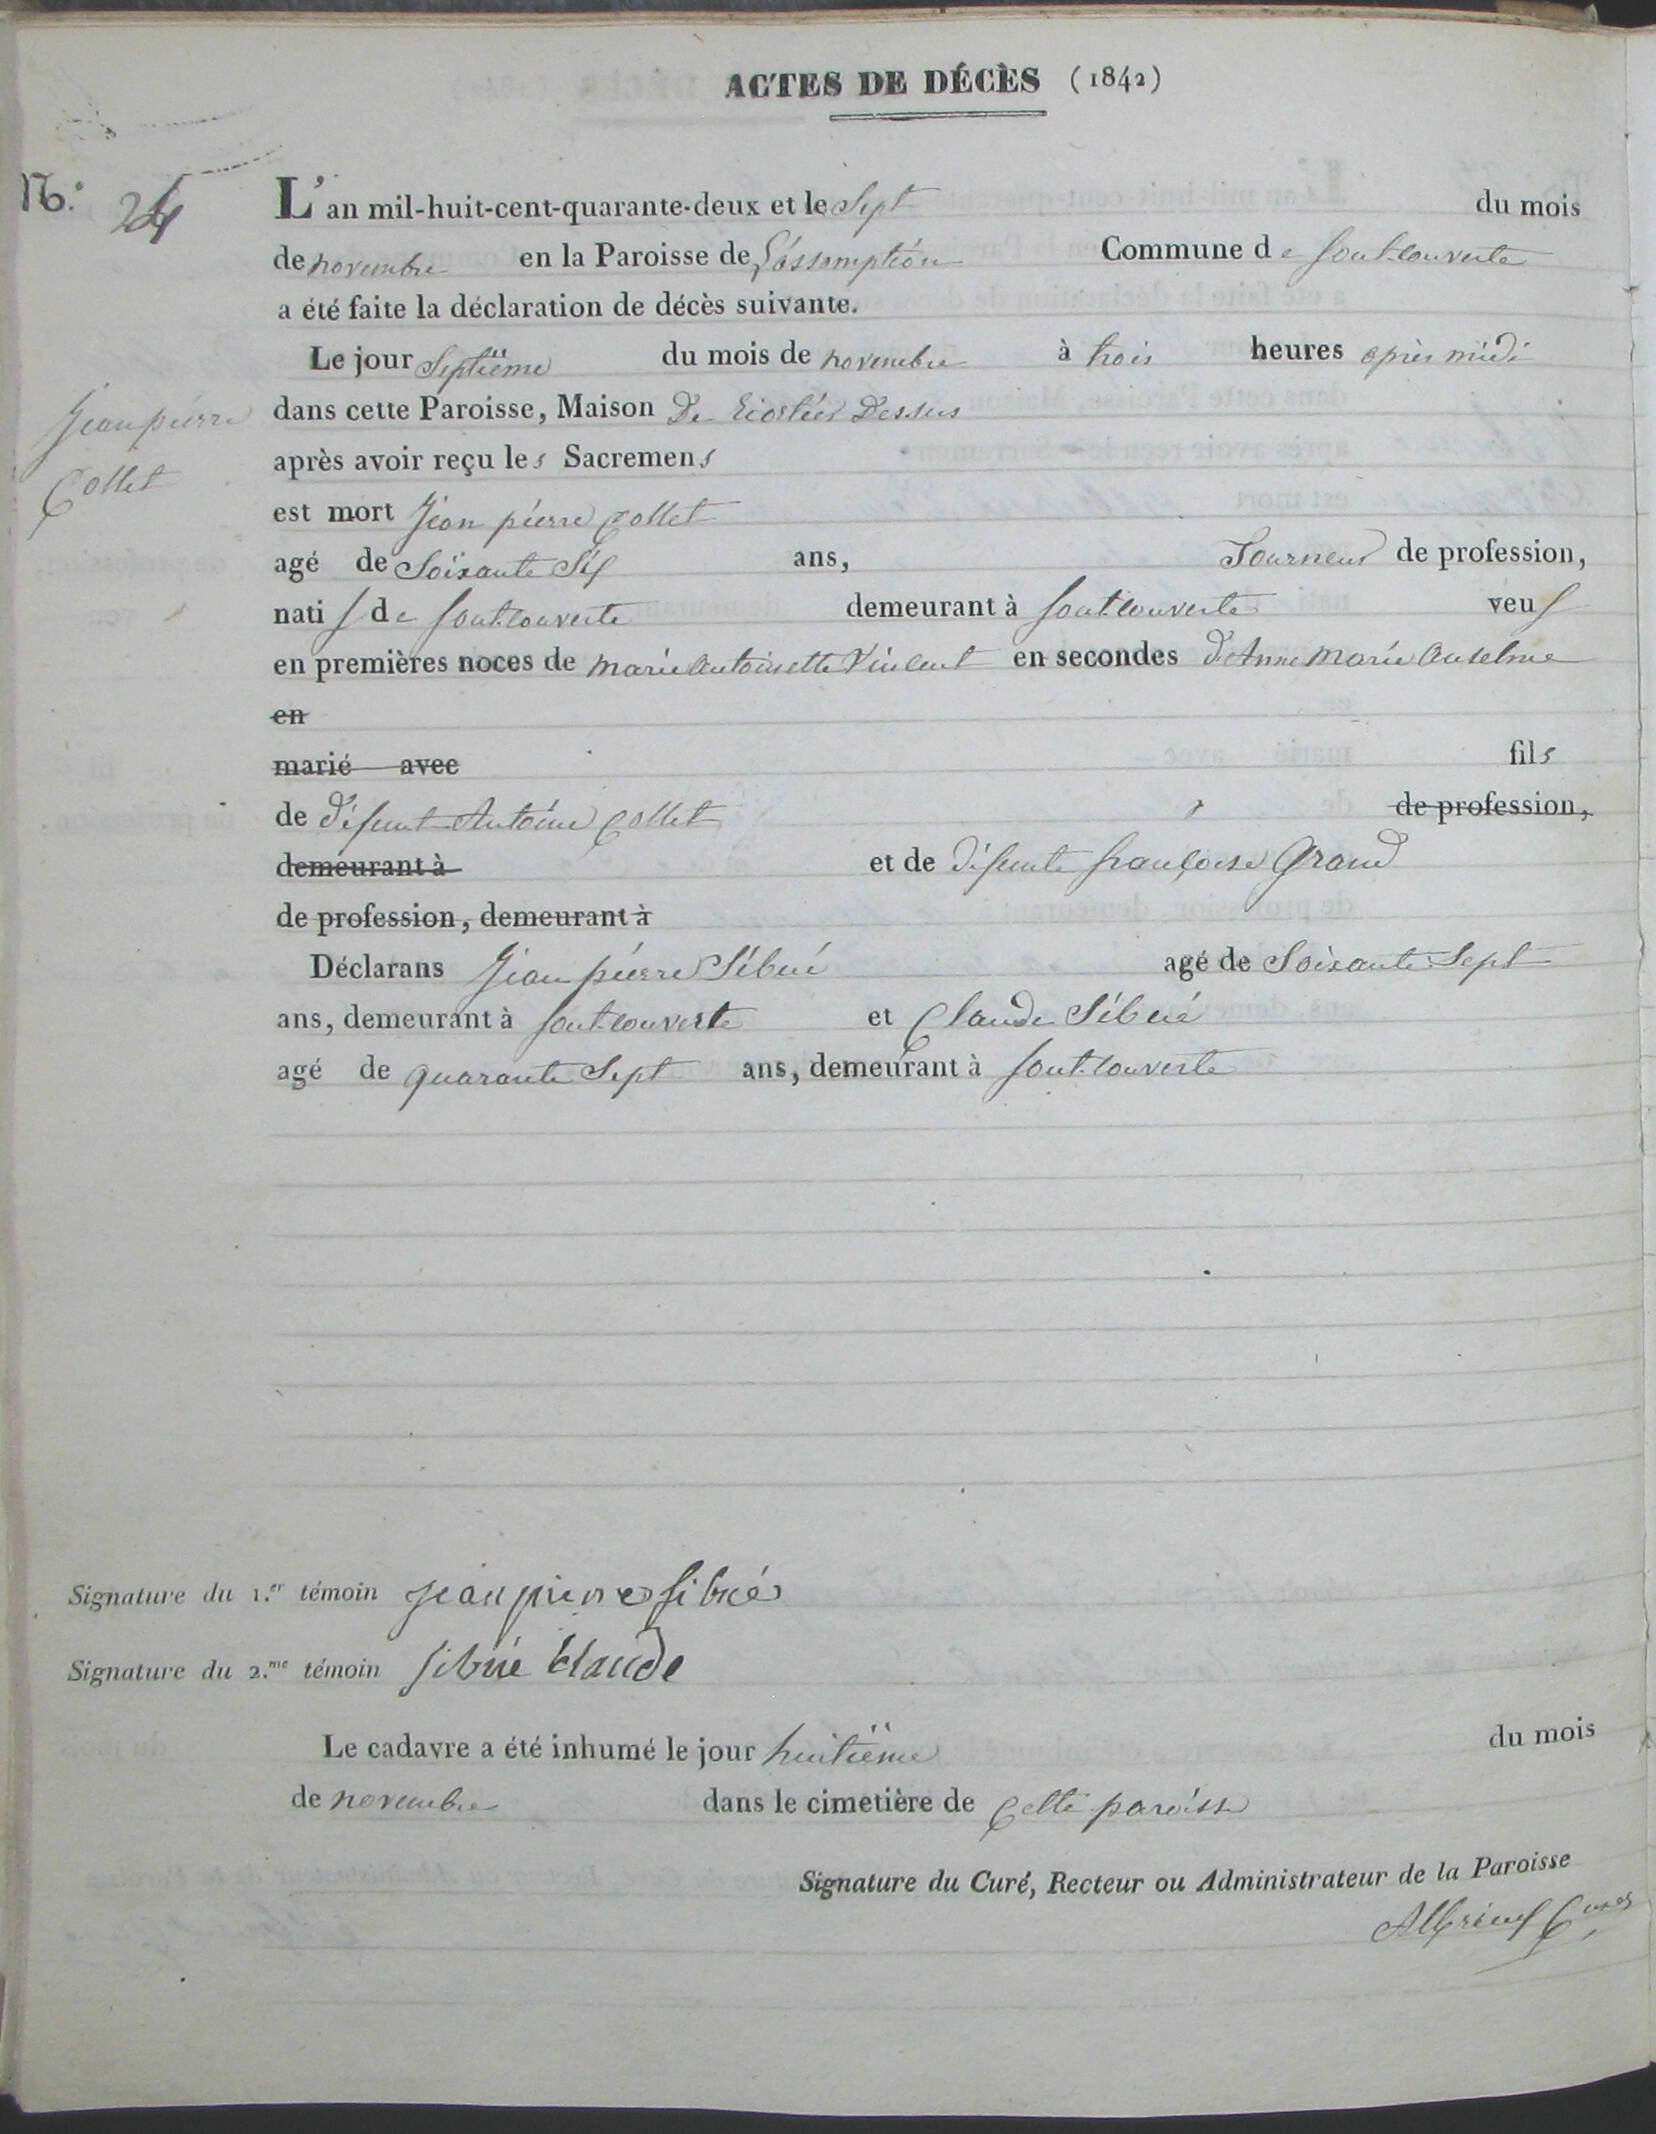 ACTES DE DÉCÈS (1842)
N.º 24
L'an mil-huit-cent-quarante-deux et le Sept du mois
de novembre en la Paroisse de L'assomption Commune de fontcouverte
a été faite la déclaration de décès suivante.
Le jour Septième du mois de novembre à trois heures après midi
dans cette Paroisse, Maison De Dessus
après avoir reçu les Sacremens
Jean pierre
Collet
est mort Jean pierre Collet
agé de Soixante Six ans, Tourneur de profession,
natif de fontcouverte demeurant à fontcouverte veuf
en premières noces de marie antoinette Vincent en secondes d'Anne marie anselme
en
marié avec fils
de défunt Antoine Collet de profession,
demeurant à et de défunte françoise Grand
de profession, demeurant à
Déclarans Jean pierre Sibué agé de Soixante Sept
ans, demeurant à fontcouverte et Claude Sibué
agé de quarante Sept ans, demeurant à fontcouverte
Signature du 1.er témoin jean pierre sibué
Signature du 2.me témoin sibué Claude
Le cadavre a été inhumé le jour huitième du mois
de novembre dans le cimetière de Cette paroisse
Signature du Curé, Recteur ou Administrateur de la Paroisse